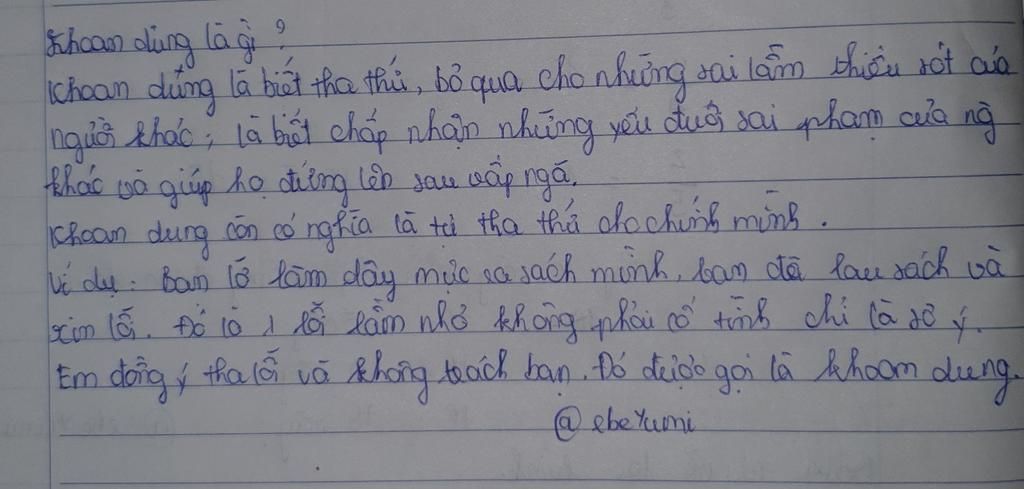 Khoan dung là gì?
Khoan dung là biết tha thứ, bỏ qua cho những sai lầm thiếu sót của
người khác; là biết chấp nhận những yếu đuối sai phạm của ng
khác và giúp họ đứng lên sau vấp ngã.
Khoan dung còn có nghĩa là tự tha thứ cho chính mình.
Ví dụ: Bạn lỡ làm dây mực ra sách mình, bạn đã lau sách và
xin lỗi. Đó là 1 lỗi lầm nhỏ không phải cố tình chỉ là sơ ý.
Em đồng ý tha lỗi và không trách bạn. Đó được gọi là khoan dung.
@ebeYumi